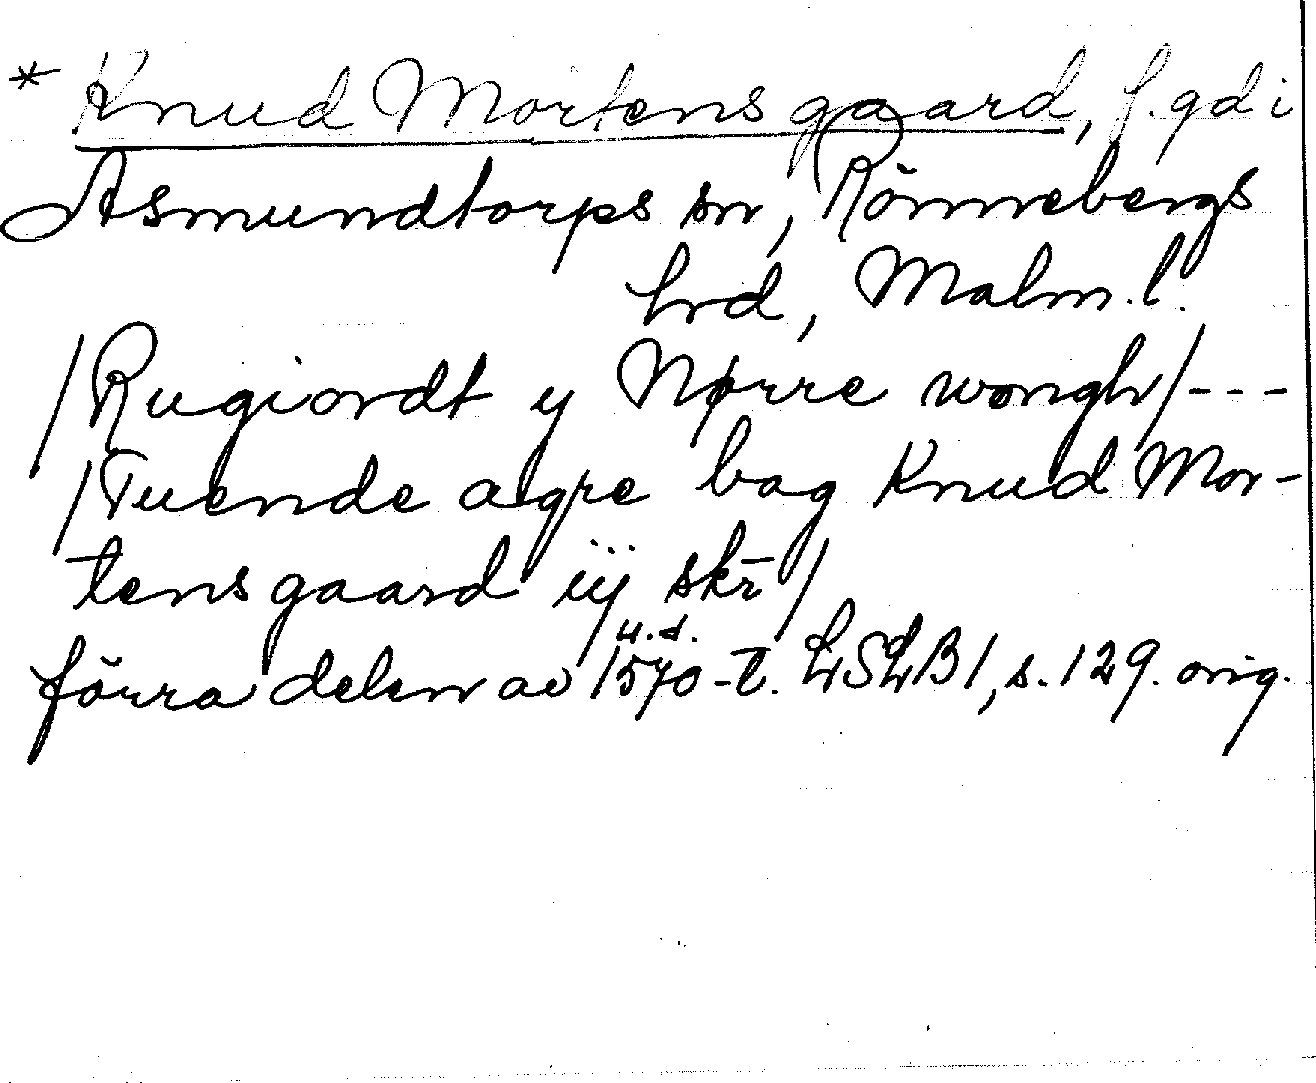 * Knud Mortens gaard, f. gd i
Asmundtorps sn, Rönnebergs
hrd, Malm. l.
/Rugiordt y Nørre wongh/---
/Tuende agre bag Knud Mor-
tens gaard iij skr̄/
u.d.
förra delen av 1570-t. LSLB1, s. 129. orig.